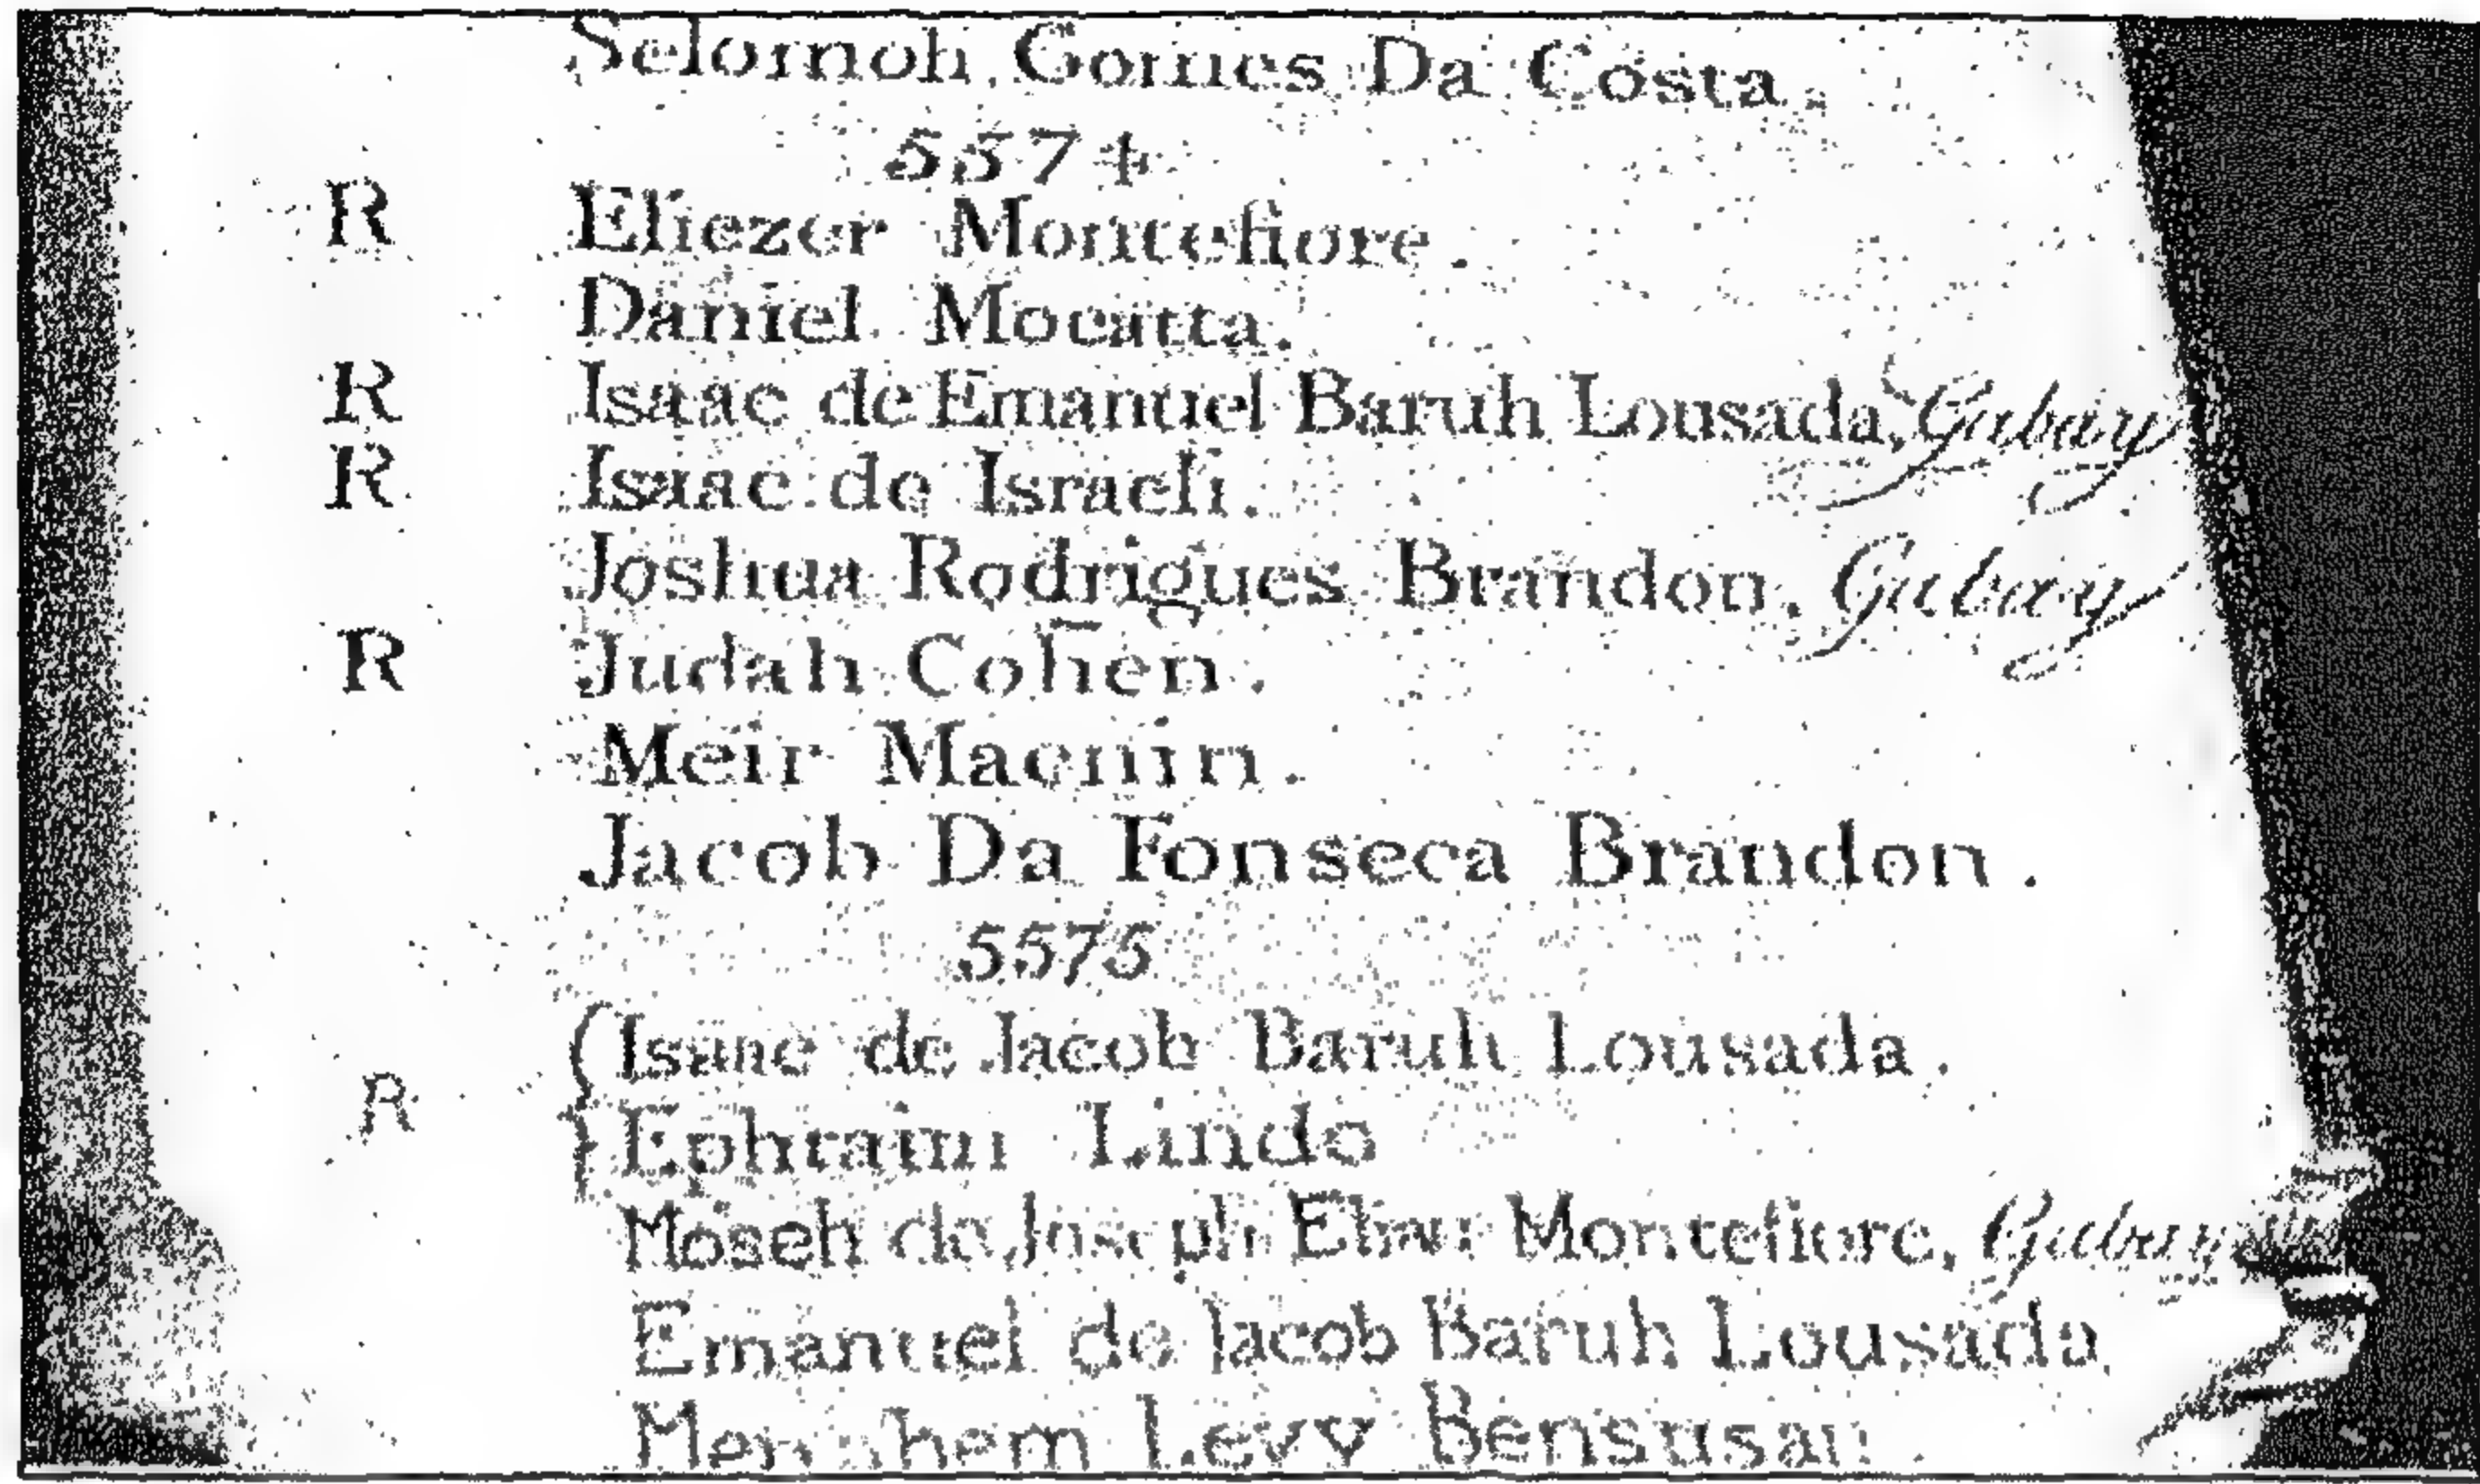 Selomoh Gomes Da Costa.
5574
R Eliezer Montefiore.
Daniel Mocatta.
R Isaac de Emanuel Baruh Lousada, Gabay
R Isaac de Israeli.
Joshua Rodrigues Brandon, Gabay
R Judah Cohen.
Meir Macnin.
Jacob Da Fonseca Brandon.
5575
Isaac de Jacob Baruh Lousada.
R Ephraim Lindo
Moseh de Joseph Eliau Montefiore, Gabay
Emanuel de Jacob Baruh Lousada
Levy Bensusan.